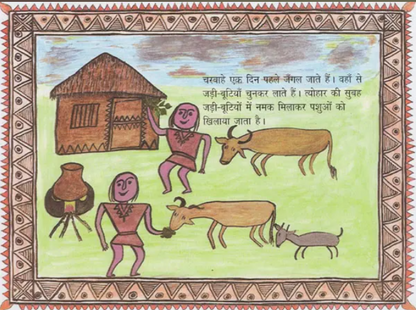 चरवाहे एक दिन पहले जंगल जाते हैं। वहाँ से
जड़ी-बूटियाँ चुनकर लाते हैं। त्योहार की सुबह
जड़ी-बूटियों में नमक मिलाकर पशुओं को
खिलाया जाता है।